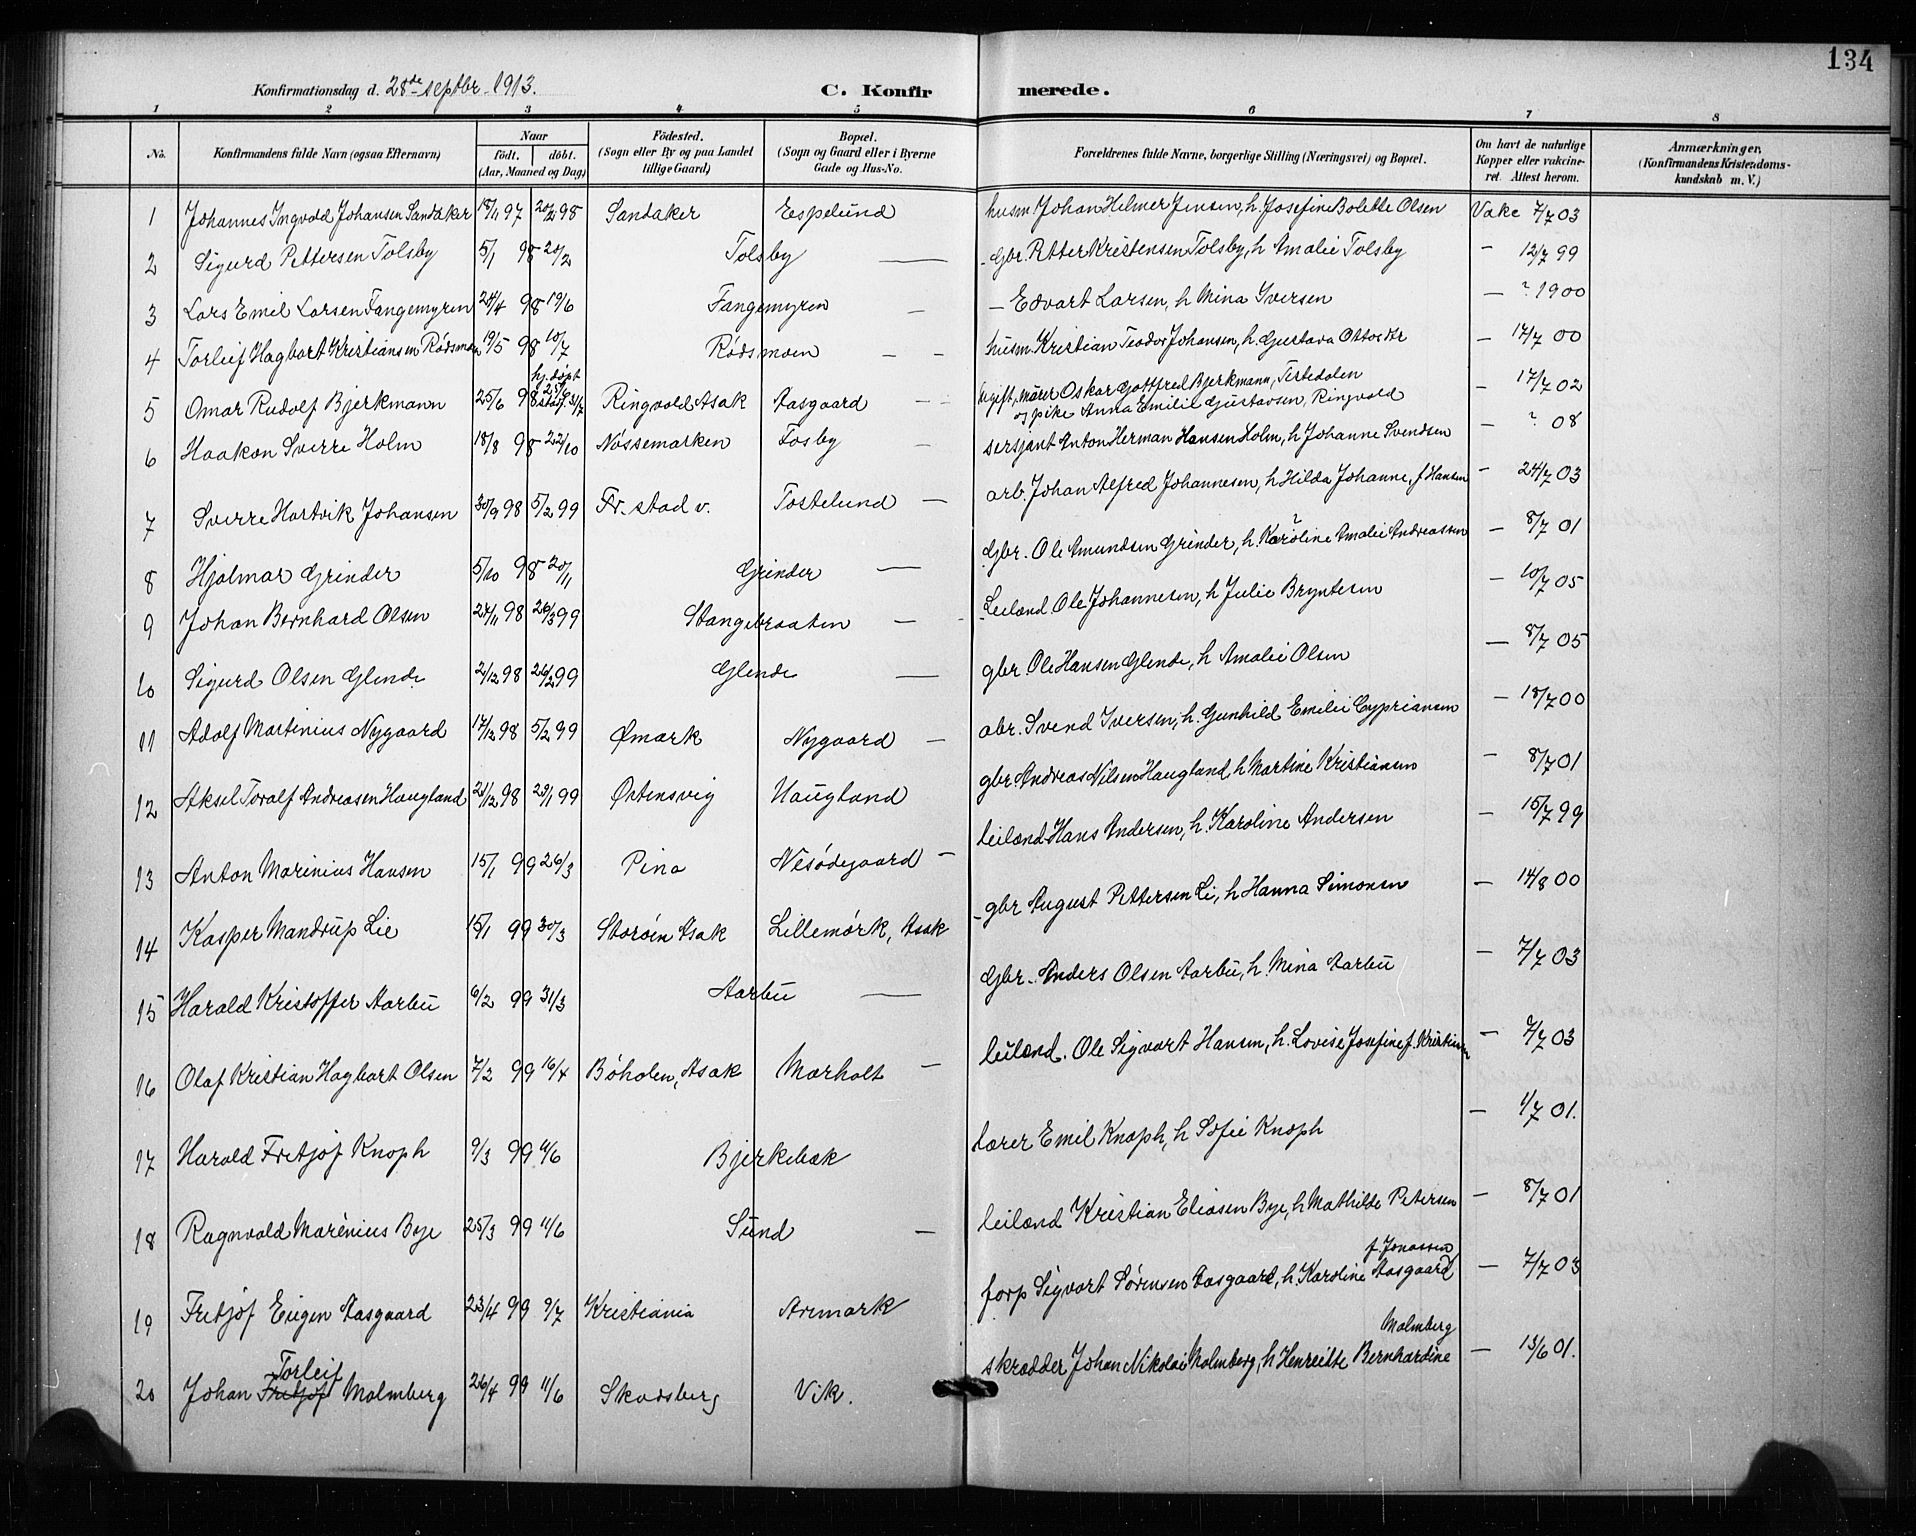 134
Konfirmationsdag d. 28de septbr. 1913. C. Konfirmerede.
1 2 3 4 5 6 7 8
No. Konfirmandens fulde Navn (ogsaa Efternavn) Naar født. døbt. (Aar, Maaned og Dag) Fødested. (Sogn eller By og paa Landet tillige Gaard) Bopæl. (Sogn og Gaard eller i Byerne Gade og Hus-No. Forældrenes fulde Navne, borgerlige Stilling (Næringsvei) og Bopæl. Om havt de naturlige Kopper eller vakcineret. Attest herom. Anmærkninger, (Konfirmandens Kristendomskundskab m. V.)
1 Johannes Ingvald Johansen Sandaker 18/11 97 20/2 98 Sandaker Espelund husm. Johan Helmer Jensen, h. Josefine Bolette Olsen Vakc 7/7 03
2 Sigurd Pettersen Tolsby 5/1 98 20/2 Tolsby — gbr. Petter Kristensen Tolsby, h Amalie Tolsby — 12/7 99
3 Lars Emil Larsen Fangemyren 24/4 98 19/6 Fangemyren — — Edvart Larsen, h Mina Iversen — ? 1900
4 Torleif Hagbart Kristiansen Rødsmoen 19/5 98 10/7 Rødsmoen — — husm. Kristian Teodor Johansen, h. Gustava Ottosdtr — 17/7 00
5 Omar Rudolf Bjerkmann 25/6 98 hj. døpt 25/6 stadf. 31/7 Ringvold Asak Aasgaard — — ugift, murer Oskar Gottfred Bjerkmann, Tistedalen — 17/7 02
og pike Anna Emilie Gustavsen, Ringvold
6 Haakon Sverre Holm 18/8 98 22/10 Nössemarken Fosby — sersjant Anton Herman Hansen Holm, h Johanne Svendsen — ? 08
7 Sverre Hartvik Johansen 30/9 98 5/2 99 Fr. stad v. Tostelund — arb. Johan Alfred Johannesen, h Hilda Johanne, f Hansen — 24/7 03
8 Hjalmar Grinder 5/10 98 20/11 Grinder — gbr. Ole Amundsen Grinder, h. Karoline Amalie Andreassen — 8/7 01
9 Johan Bernhard Olsen 27/11 98 26/3 99 Stangebraaten — Leilænd Ole Johannesen, h Julie Bryntesen — 10/7 05
10 Sigurd Olsen Glende 2/12 98 26/2 99 Glende — gbr. Ole Hansen Glende, h Amalie Olsen — 8/7 05
11 Adolf Martinius Nygaard 17/12 98 5/2 99 Ømark Nygaard — abr. Svend Iversen, h. Gunhild Emilie Cypriansen — 18/7 00
12 Aksel Toralf Andreasen Haugland 21/12 98 29/1 99 Østensvig Haugland gbr. Andreas Nilsen Haugland, h Martine Kristiansen — 8/7 01
13 Anton Marinius Hansen 15/1 99 26/3 Pina Nesødegaard — leilænd Hans Andersen, h. Karoline Andersen — 15/7 99
14 Kasper Mandrup Lie 15/1 99 30/3 Storøen Asak Lillemørk, Asak gbr August Pettersen Li, h Hanna Simonsen — 14/8 00
15 Harald Kristoffer Aarbu 6/2 99 31/3 Aarbu — gbr. Anders Olsen Aarbu, h. Mina Aarbu — 7/7 03
16 Olaf Kristian Hagbart Olsen 7/2 99 16/4 Bøholen, Asak Marholt — leilænd. Ole Sigvart Hansen, h. Lovise Josefine f. Kristiansen — 7/7 03
17 Harald Fritjof Knoph 9/3 99 4/6 Bjerkebæk lærer Emil Knoph, h Sofie Knoph — 1/7 01.
18 Ragnvald Marenius Bye 25/3 99 11/6 Sund — leilænd Kristian Eliasen Bye, h Mathilde Petersen — 8/7 01
19 Fritjof Eugen Aasgaard 23/4 99 9/7 Kristiania Aremark forp Sigvart Sørensen Aasgaard, h Karoline Aasgaard f. Jonassen — 7/7 03
20 Johan Fritjof Torleif Malmberg 26/4 99 11/6 Skodsberg Vik. skrædder Johan Nikolai Malmberg, h Henreitte Bernhardine Malmberg — 13/6 01.